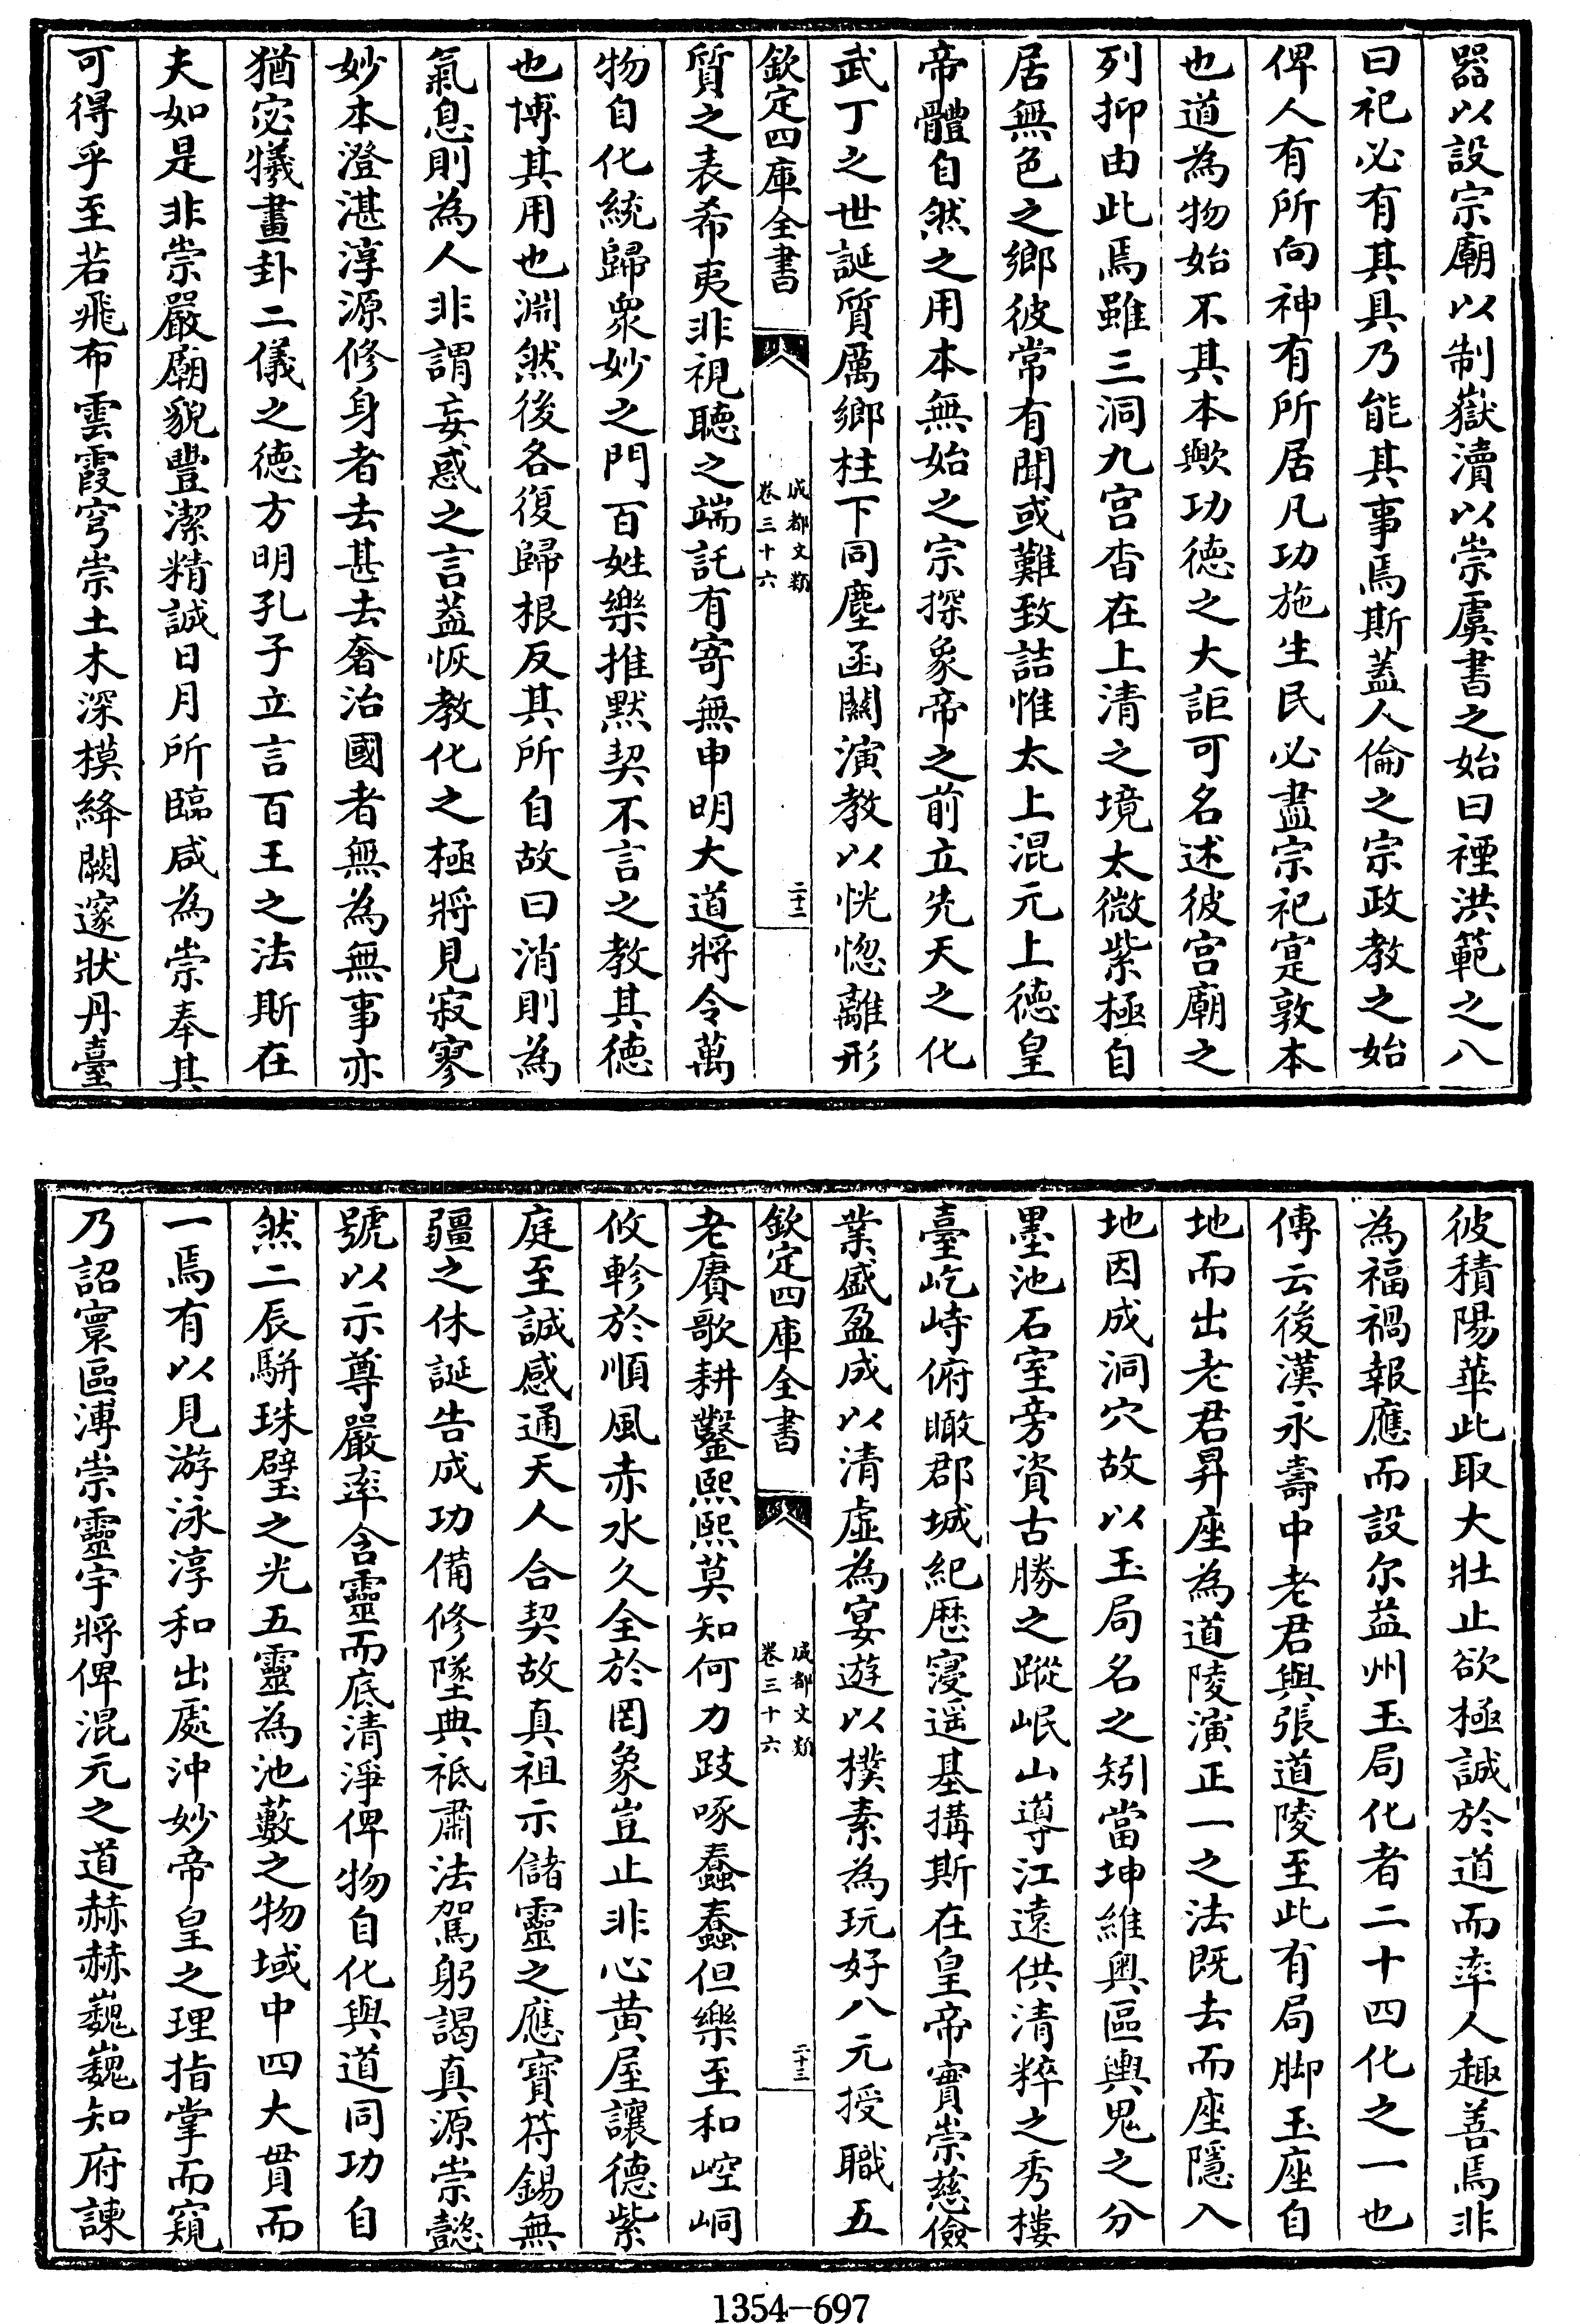 器以設宗廟以制嶽瀆以崇虞書之始曰禋洪範之八
曰祀必有其具乃能其事焉斯蓋人倫之宗政教之始
俾人有所向神有所居凡功施生民必盡宗祀寔敦本
也道為物始不其本歟功德之大詎可名述彼宫廟之
列抑由此焉雖三洞九宫杳在上清之境太微紫極自
居無色之鄉彼常有聞或難致詰惟太上混元上德皇
帝體自然之用本無始之宗探象帝之前立先天之化
武丁之世誕質厲鄉柱下同塵函關演教以恍惚離形
欽定四庫全書
成都文類
卷三十六
二十二
質之表希夷非視聽之端託有寄無申明大道將令萬
物自化統歸衆妙之門百姓樂推默契不言之教其德
也博其用也淵然後各復歸根反其所自故曰消則為
氣息則為人非謂妄惑之言葢恢教化之極將見寂寥
妙本澄湛淳源修身者去甚去奢治國者無為無事亦
猶宓犧畫卦二儀之德方明孔子立言百王之法斯在
夫如是非崇嚴廟貌豐潔精誠日月所臨咸為崇奉其
可得乎至若飛布雲霞穹崇土木深模絳闕邃狀丹臺
彼積陽華此取大壯止欲極誠於道而率人趣善焉非
為福禍報應而設尔益州玉局化者二十四化之一也
傳云後漢永壽中老君與張道陵至此有局脚玉座自
地而出老君昇座為道陵演正一之法既去而座隱入
地因成洞穴故以玉局名之矧當坤維輿區輿鬼之分
墨池石室旁資古勝之蹤岷山導江遠供清粹之秀樓
臺屹峙俯瞰郡城紀厯寖遥基搆斯在皇帝實崇慈儉
業盛盈成以清虚為宴遊以樸素為玩好八元授職五
欽定四庫全書
成都文類
卷三十六
二十三
老賡歌耕鑿熙熙莫知何力跂啄蠢蠢但樂至和崆峒
攸軫於順風赤水久全於罔象豈止非心黄屋讓德紫
庭至誠感通天人合契故真祖示儲靈之應寳符錫無
疆之休誕告成功備修墜典祗肅法駕躬謁真源崇懿
號以示尊嚴率含靈而底清淨俾物自化與道同功自
然二辰駢珠璧之光五靈為池藪之物域中四大貫而
一焉有以見游泳淳和出處沖妙帝皇之理指掌而窺
乃詔寰區溥崇靈宇將俾混元之道赫赫巍巍知府諫
1354-697